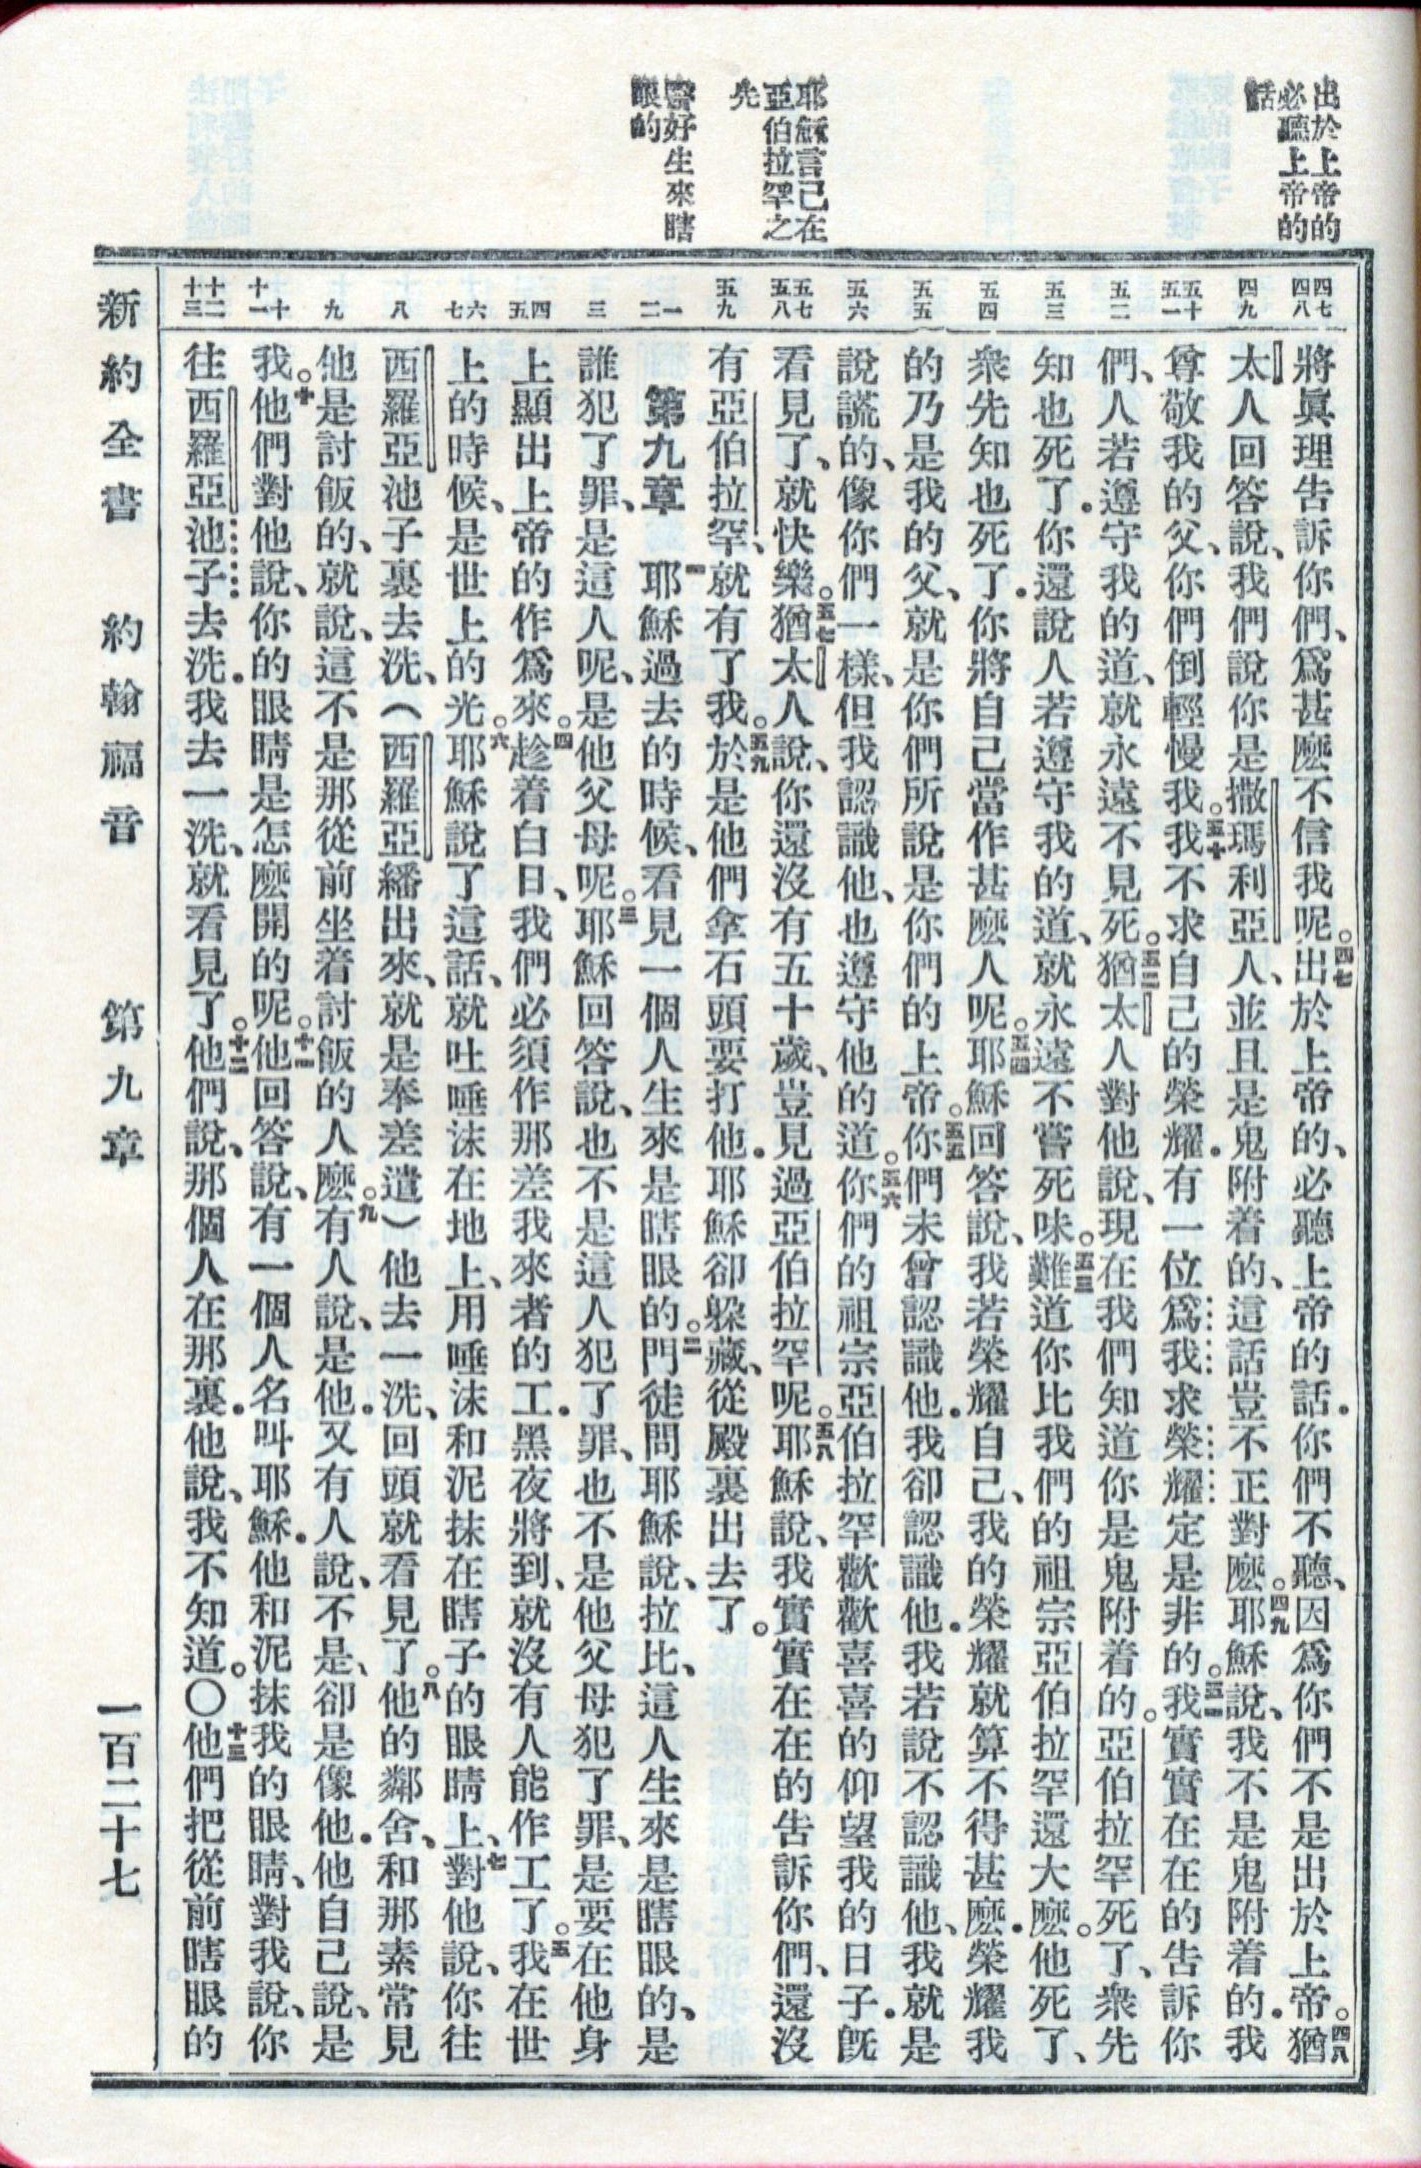 出於上帝的
必聽上帝的
話
耶穌言己在
亞伯拉罕之
先
醫好生來瞎
眼的
四七 四八
四九
五十 五一
五二
五三
五四
五五
五六
五七 五八
五九
一 二
三
四 五
六 七
八
九
十 十一
十二 十三
將眞理告訴你們、爲甚麽不信我呢。四七出於上帝的、必聽上帝的話．你們不聽、因爲你們不是出於上帝。四八猶
太人回答說、我們說你是撒瑪利亞人、並且是鬼附着的、這話豈不正對麽。四九耶穌說、我不是鬼附着的．我
尊敬我的父、你們倒輕慢我。五十我不求自己的榮耀．有一位爲我求榮耀定是非的。五一我實實在在的告訴你
們、人若遵守我的道、就永遠不見死。五二猶太人對他說、現在我們知道你是鬼附着的。亞伯拉罕死了、衆先
知也死了．你還說人若遵守我的道、就永遠不嘗死味。五三難道你比我們的祖宗亞伯拉罕還大麽。他死了、
衆先知也死了．你將自己當作甚麽人呢。五四耶穌回答說、我若榮耀自己、我的榮耀就算不得甚麽．榮耀我
的乃是我的父、就是你們所說是你們的上帝。五五你們未曾認識他．我卻認識他．我若說不認識他、我就是
說謊的、像你們一樣、但我認識他、也遵守他的道。五六你們的祖宗亞伯拉罕歡歡喜喜的仰望我的日子．旣
看見了、就快樂。五七猶太人說、你還沒有五十歲、豈見過亞伯拉罕呢。五八耶穌說、我實實在在的告訴你們、還沒
有亞伯拉罕、就有了我。五九於是他們拿石頭要打他．耶穌卻躲藏、從殿裏出去了。
第九章 一耶穌過去的時候、看見一個人生來是瞎眼的。二門徒問耶穌說、拉比、這人生來是瞎眼的、是
誰犯了罪、是這人呢、是他父母呢。三耶穌回答說、也不是這人犯了罪、也不是他父母犯了罪、是要在他身
上顯出上帝的作爲來。四趁着白日、我們必須作那差我來者的工．黑夜將到、就沒有人能作工了。五我在世
上的時候、是世上的光。六耶穌說了這話、就吐唾沫在地上、用唾沫和泥抹在瞎子的眼睛上、七對他說、你往
西羅亞池子裏去洗、（西羅亞繙出來、就是奉差遣）他去一洗、回頭就看見了。八他的鄰舍、和那素常見
他是討飯的、就說、這不是那從前坐着討飯的人麽。九有人說、是他．又有人說、不是、卻是像他．他自己說、是
我。十他們對他說、你的眼睛是怎麽開的呢。十一他回答說、有一個人名叫耶穌．他和泥抹我的眼睛、對我說、你
往西羅亞池子去洗．我去一洗、就看見了。十二他們說、那個人在那裏．他說、我不知道。〇十三他們把從前瞎眼的
新約全書 約翰福音 第九章 一百二十七